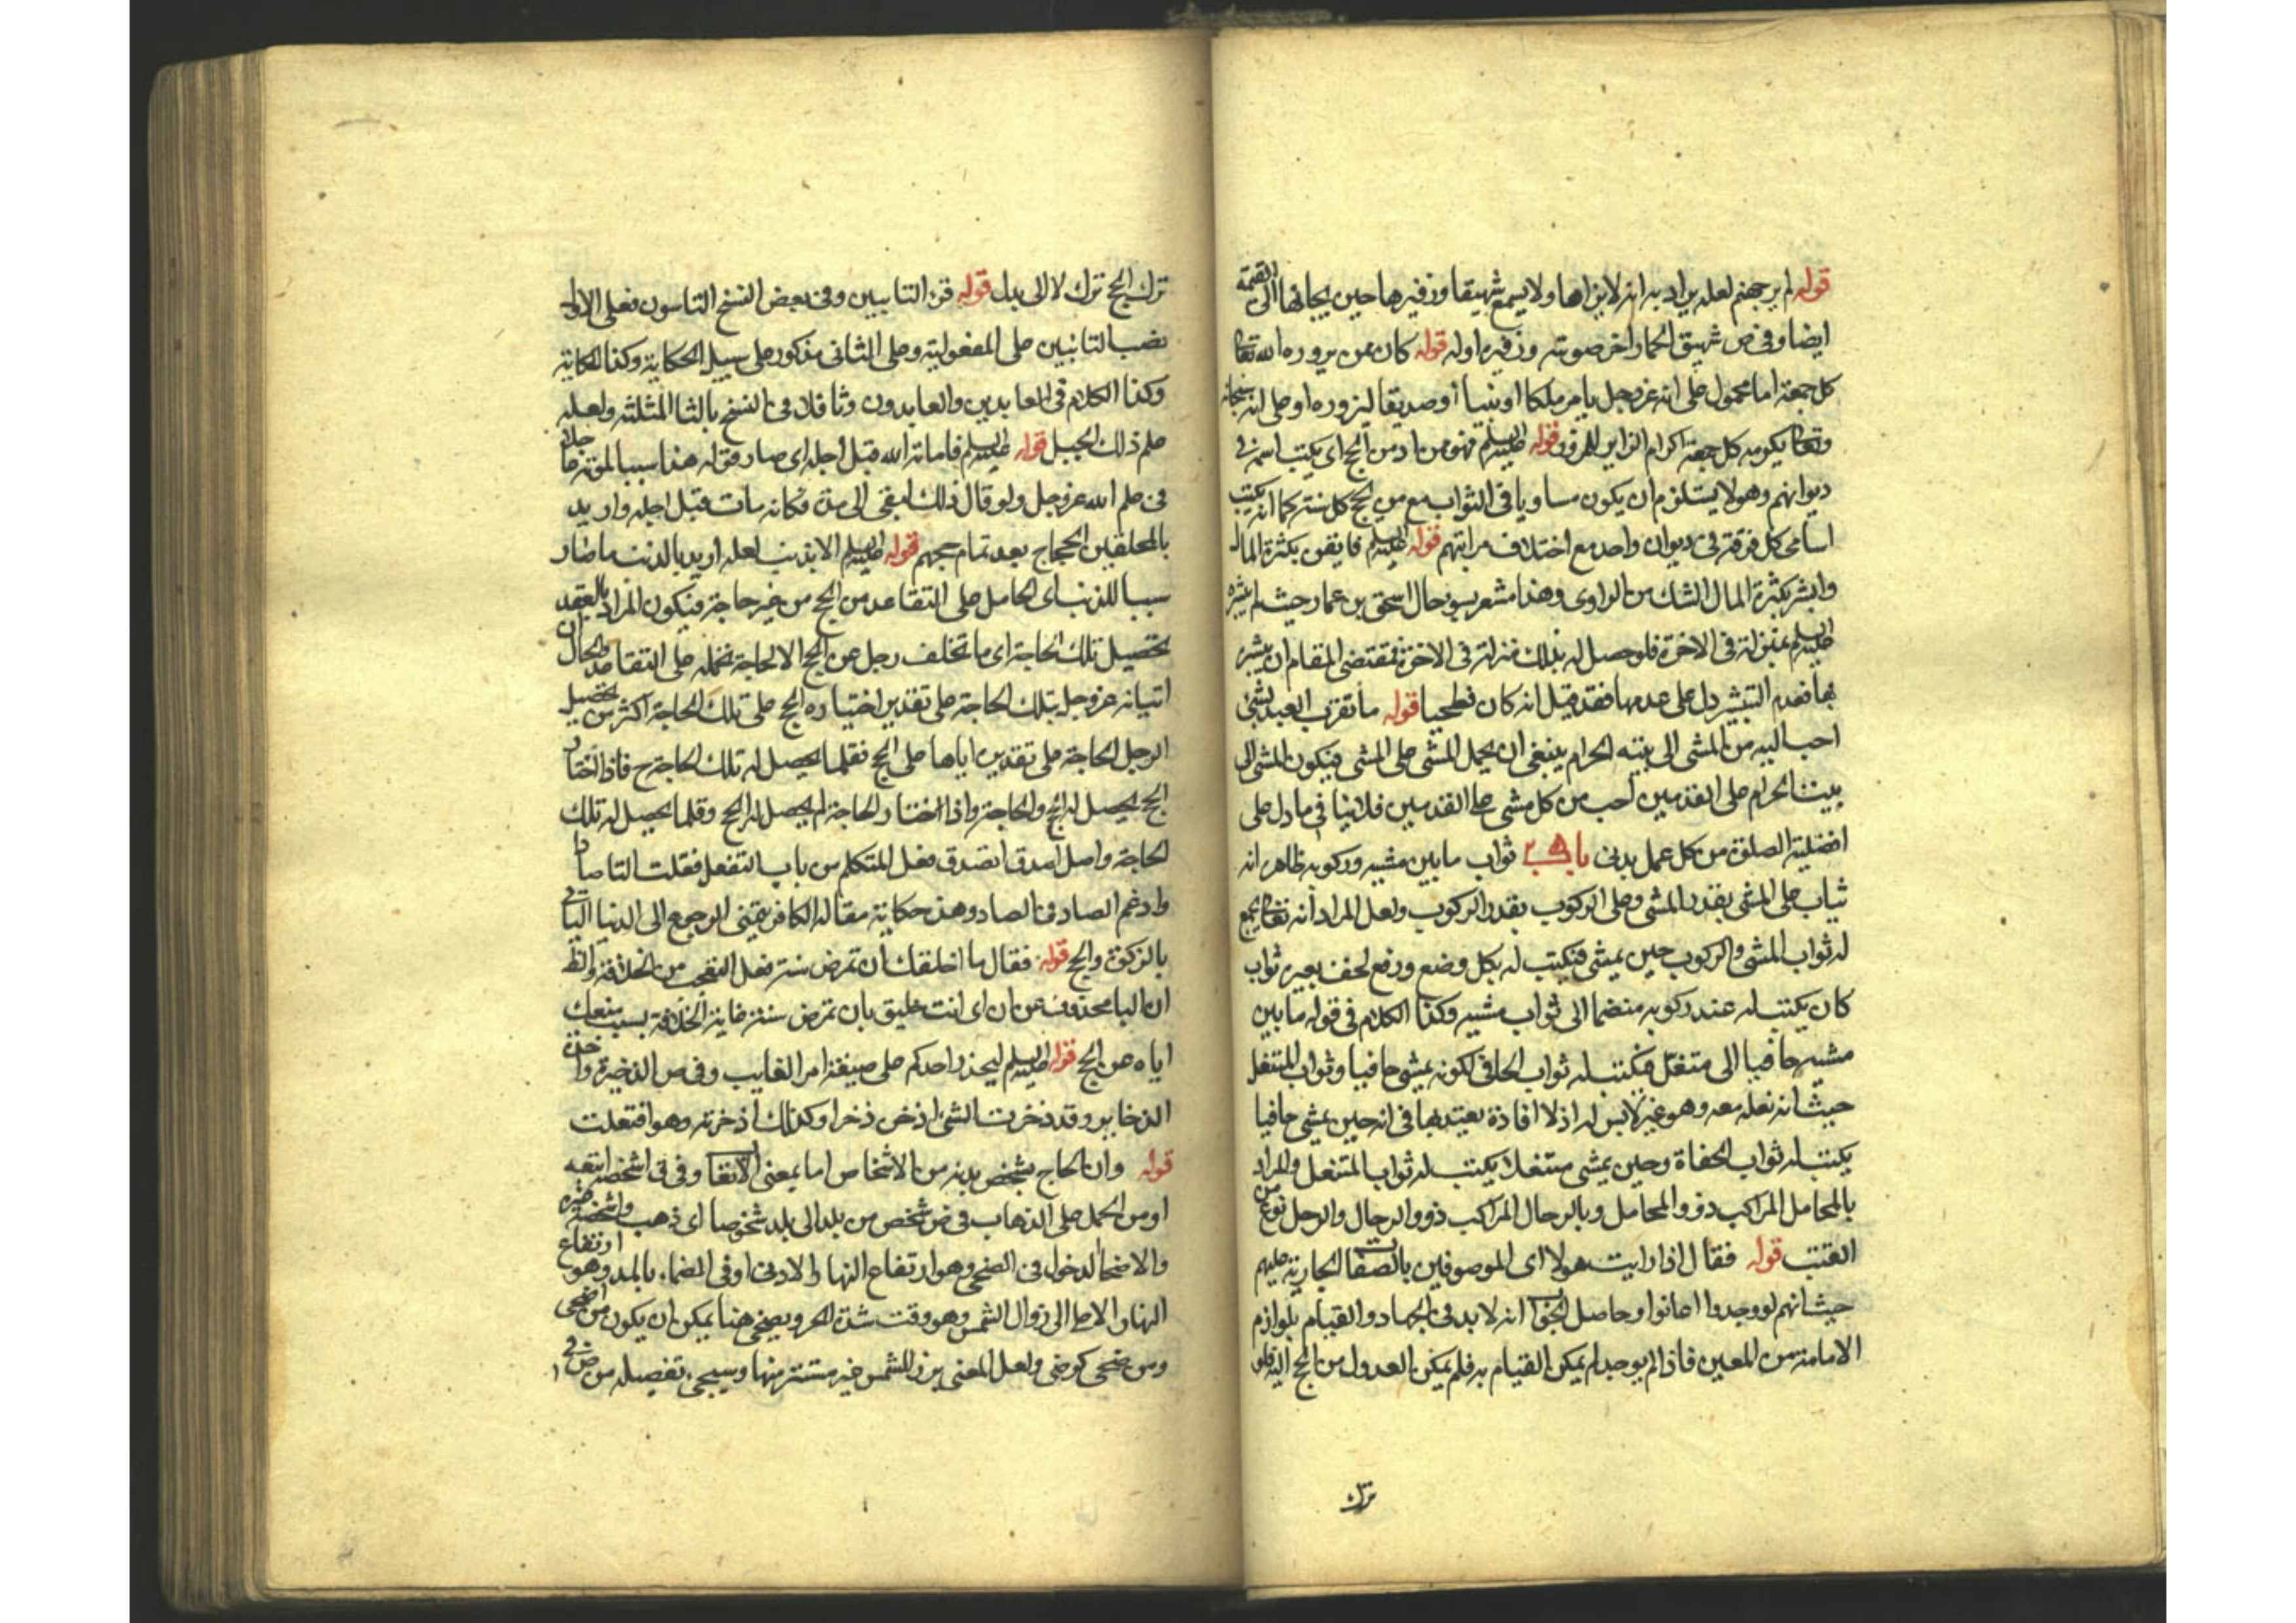 قوله لم ير جهنم لعله يراد به انه لا يراها ولا يسمع شهيقا وزفيرها حين يجاء بها الى القيمة
ايضا وفى ص شهيق الحمار اخر صوته وزفيره اوله قوله كان ممن يزوره الله تعا
كل جمعة اما محمول على انه عز وجل يامر ملكا او نبيا او صديقا ليزوره او على انه سبحانه
وتعا يكرمه كل جمعة اكرام الزاير للمزور قوله عليه السلم فهو من ادمن الحج اى يكتب اسمه فى
ديوانهم وهو لا يستلزم ان يكون مساويا فى الثواب مع من يحج كل سنة كما انه يكتب
اسامى كل فرقة فى ديوان واحد مع اختلاف مراتبهم قوله عليه السلم فايقن بكثرة المال
وابشر بكثرة المال الشك من الراوى وهذا مشعر بسو حال اسحق بن عمار حيث لم يبشره
عليه السلم بمنزلته فى الاخرة فلو حصل له بذلك منزلة فى الاخرة فمقتضى المقام ان يبشر
بها فعدم التبشير دل على عدمها فقد قيل انه كان فطحيا قوله ما تقرب العبد بشئ
احب اليه من المشى الى بيته الحرام ينبغى ان يحمل المشى على المشى فيكون المشى الى
بيت الحرام على القدمين احب من كل مشى على القدمين فلا ينافى ما دل على
افضلية الصلوة من كل عمل بدنى باب ثواب ما بين مشيه وركوبه ظاهره انه
يثاب على المشى بقدر المشى وعلى الركوب بقدر الركوب ولعل المراد انه تعا يجمع
له ثواب المشى والركوب حين يمشى فيكتب له بكل وضع ورفع لخف بعيره ثواب
كان يكتب له عند ركوبه منضما الى ثواب مشيه وكذا الكلام فى قوله ما بين
مشيه حافيا الى متنعل فيكتب له ثواب الحافى لكونه يمشى حافيا وثواب المتنعل
حيث انه نعله معه وهو غير لابس له اذ لا افادة يعتد بها فى انه حين يمشى حافيا
يكتب له ثواب الحفاة وحين يمشى متنعلا يكتب له ثواب المتنعل والمراد
بالمحامل المراكب ذوو المحامل وبالرحال المراكب ذوو الرحال والرحل نوع من
القتب قوله فقال اذا رايت هولا اى الموصوفين بالصفات الجارية عليهم
حيث انهم لو وجدوا اعانوا وحاصل الجواب انه لا بد فى الجهاد والقيام بلوازم
الامامة من المعين فاذا لم يوجد لم يمكن القيام به فلم يمكن العدول من الحج اليه فلو
ترك
ترك الحج ترك لا الى بدل قوله قرء التابيين وفى بعض النسخ التاسون فعلى الاول
نصب التائبين على المفعولية وعلى الثانى مذكور على سبيل الحكاية وكذا الحكاية
وكذا الكلام فى العابدين والعابدون وثا فلا فى النسخ بالثا المثلثة ولعله
علم ذلك الجبل قوله عليه السلم فاماته الله قبل اجله اى صار قوله هذا سببا لموته
فى علم الله عز وجل ولو قال ذلك لبقى الى مدة فكانه مات قبل اجله واريد
بالمحلقين الحجاج بعد تمام حجهم قوله عليه السلم الا بذنب لعله اريد بالذنب ما صار
سببا للذنب اى الحامل على التقاعد من الحج من غير حاجة فيكون المراد بالعقد
تحصيل تلك الحاجة اى ما تخلف رجل عن الحج الا لحاجة تحمله على التقاعد والحال ان
اتيانه عز وجل بتلك الحاجة على تقدير اختياره الحج على تلك الحاجة اكثر من تحصيل
الرجل الحاجة على تقديره اياها على الحج فقلما يحصل له تلك الحاجة ح فاذا اختار
الحج يحصل له الحج والحاجة واذا اختار الحاجة لم يحصل له الحج وقلما يحصل له تلك
الحاجة واصل اصدق اتصدق فعل المتكلم من باب التفعل فقلت التا صادا
وادغم الصاد فى الصاد وهذه حكاية مقالة الكافر يتمنى الرجوع الى الدنيا لياتى
بالزكوة والحج قوله فقال ما اخلقك ان تمرض سنة فعل التعجب من الخلاقة والظ
ان البا محذوف عن ان اى انت خليق بان تمرض سنة غاية الخلاقة بسبب منعك
اياه عن الحج قوله عليه السلم ليحذر احدكم على صيغة امر الغايب وفى ص الذخيرة واحدة
الذخاير وقد ذخرت الشئ اذخر ذخرا وكذلك اذخرته وهو افتعلت
قوله وان الحاج يشخص بدنه من الاشخاص اما بمعنى الاتعاب وفى ق اشخصه اتعبه
او من الحمل على الذهاب فى ص شخص من بلد الى بلد شخوصا اى ذهب واشخصه غيره
والاضحا الدخول فى الضحى وهو ارتفاع النهار الادنى او فى الضحاء بالمد وهو ارتفاع
النهار الاعلى الى زوال الشمس وهو وقت شدة الحر ويضحى هنا يمكن ان يكون من اضحى
ومن ضحى كرضى ولعل المعنى برز للشمس غير مستتر منها وسيجى تفصيله من ص فى